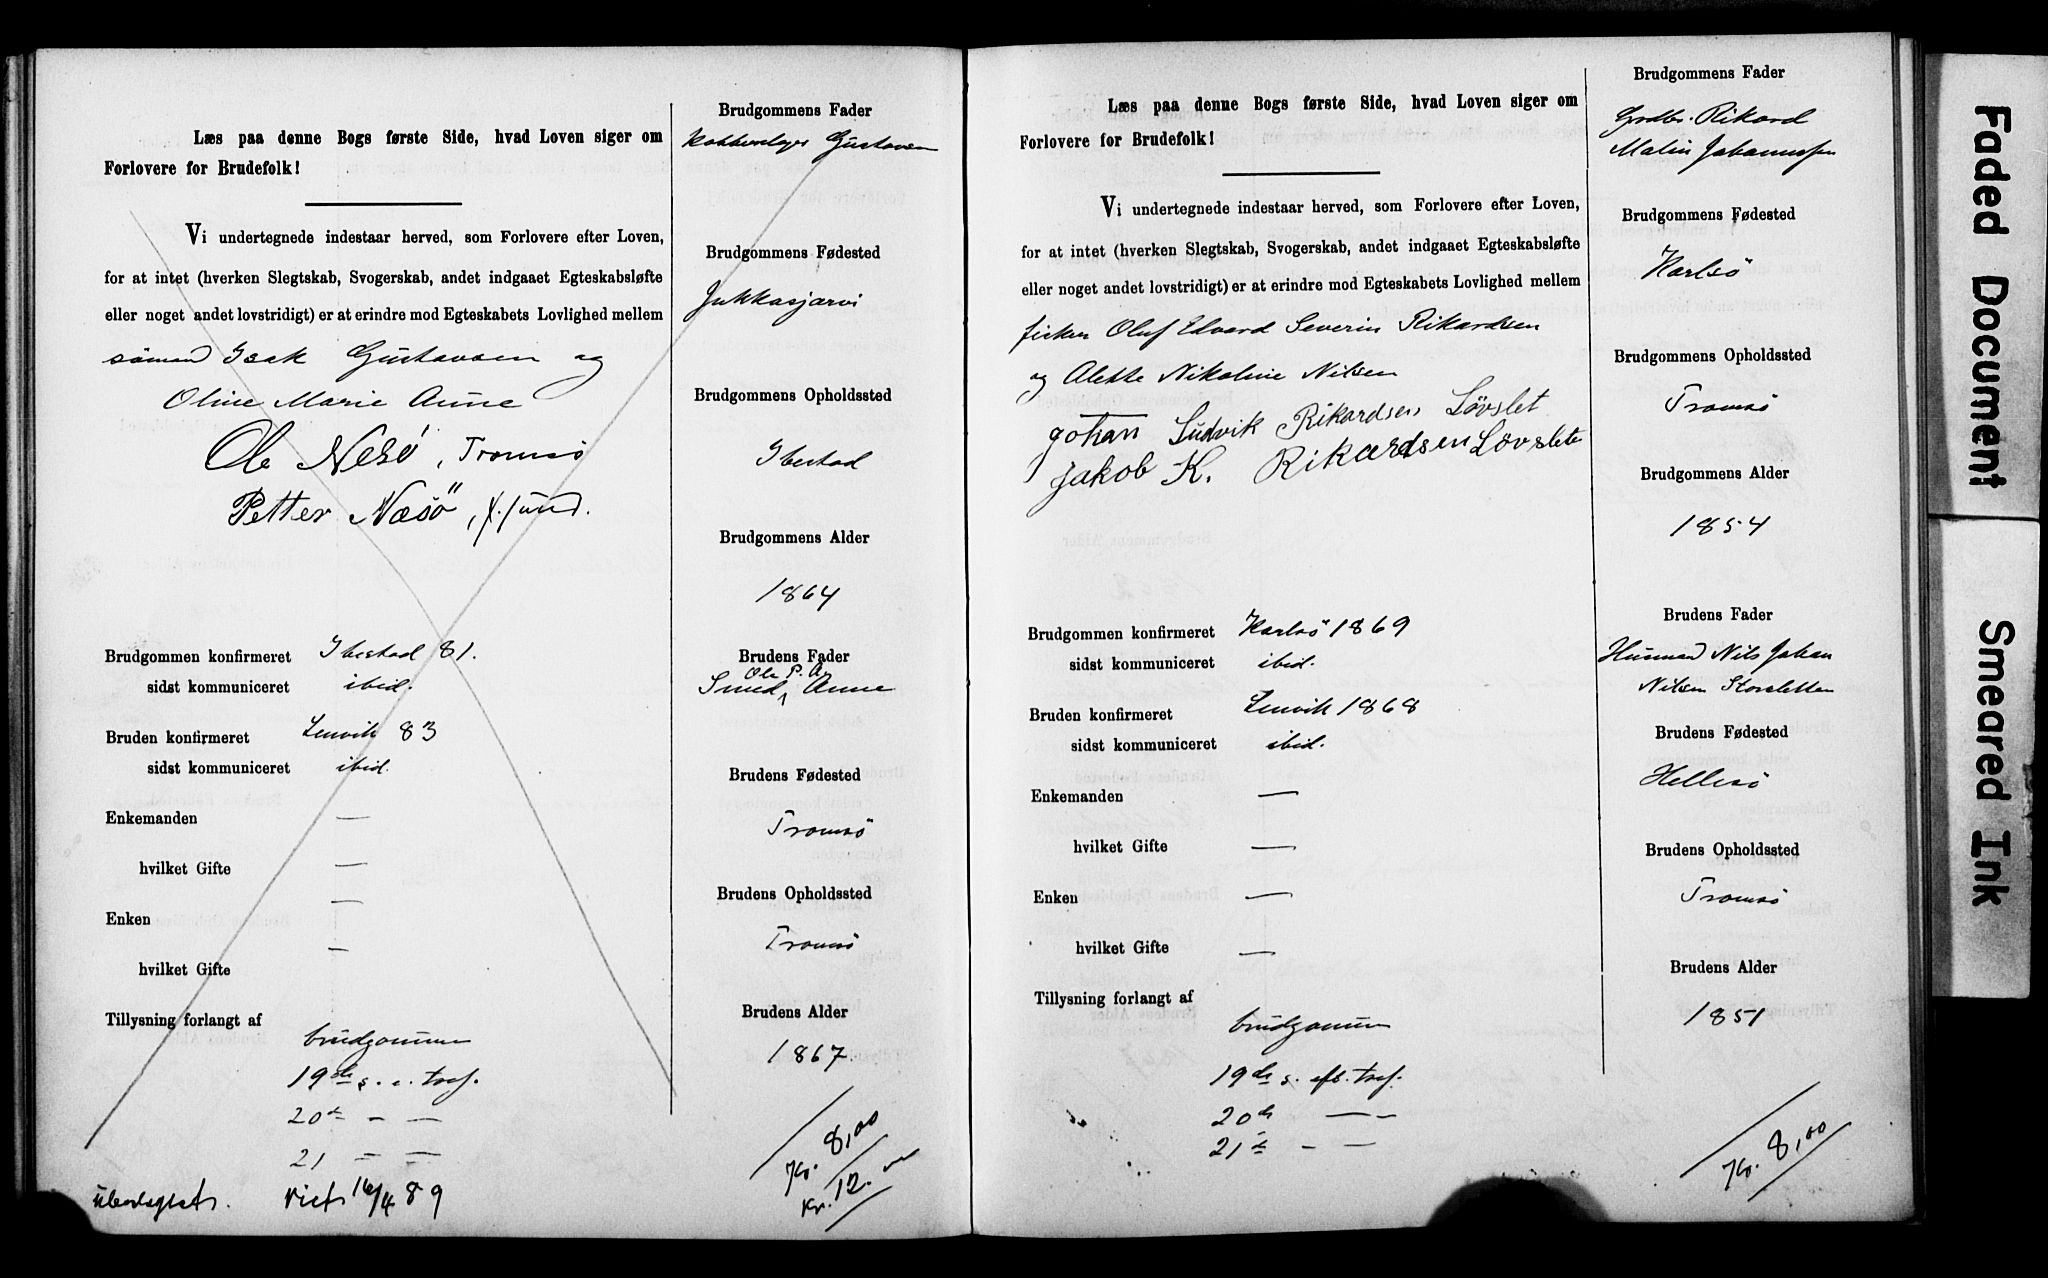 Læs paa denne Bogs første Side, hvad Loven siger om
Forlovere for Brudefolk!
Vi undertegnede indestaar herved, som Forlovere efter Loven,
for at intet (hverken Slegtskab, Svogerskab, andet indgaaet Egteskabsløfte
eller noget andet lovstridigt) er at erindre mod Egteskabets Lovlighed mellem
sömand Isak Gustavsen og
Oline Marie Anne
Ole Nesö, Tromsö
Petter Næsö, sund.
Brudgommen konfirmeret Ibestad 81.
sidst kommuniceret ibid.
Bruden konfirmeret Lenvik 83
sidst kommuniceret ibid.
Enkemanden —
hvilket Gifte —
Enken —
hvilket Gifte —
Tillysning forlangt af
brudgommen
19de s. e. tref.
20de — —
21 — —
viet 16/4 89
Brudgommens Fader
Gustavsen
Brudgommens Fødested
Jukkasjærvi
Brudgommens Opholdssted
Ibestad
Brudgommens Alder
1864
Brudens Fader
Ole P. A.
Smed Anne
Brudens Fødested
Tromsö
Brudens Opholdssted
Tromsö
Brudens Alder
1867
Kr. 8,00
Kr. 12.
Læs paa denne Bogs første Side, hvad Loven siger om
Forlovere for Brudefolk!
Vi undertegnede indestaar herved, som Forlovere efter Loven,
for at intet (hverken Slegtskab, Svogerskab, andet indgaaet Egteskabsløfte
eller noget andet lovstridigt) er at erindre mod Egteskabets Lovlighed mellem
fisker Oluf Edvard Severin Rikardsen
og Alette Nikoline Nilsen
Johan Ludvik Rikardsen Lövslet
Jakob K. Rikardsen Lövslete
Brudgommen konfirmeret Karlsö 1869
sidst kommuniceret ibid.
Bruden konfirmeret Lenvik 1868
sidst kommuniceret ibid.
Enkemanden —
hvilket Gifte —
Enken —
hvilket Gifte —
Tillysning forlangt af
brudgommen
19de s. eft. tref.
20de — —
21de — —
Brudgommens Fader
Grdbr. Rikard
Malin Johannessen
Brudgommens Fødested
Karlsö
Brudgommens Opholdssted
Tromsö
Brudgommens Alder
1854
Brudens Fader
Husmand Nils Johan
Nilsen Storsletten
Brudens Fødested
Hellesö
Brudens Opholdssted
Tromsö
Brudens Alder
1851
Kr. 8,00
Faded Document
Smeared Ink